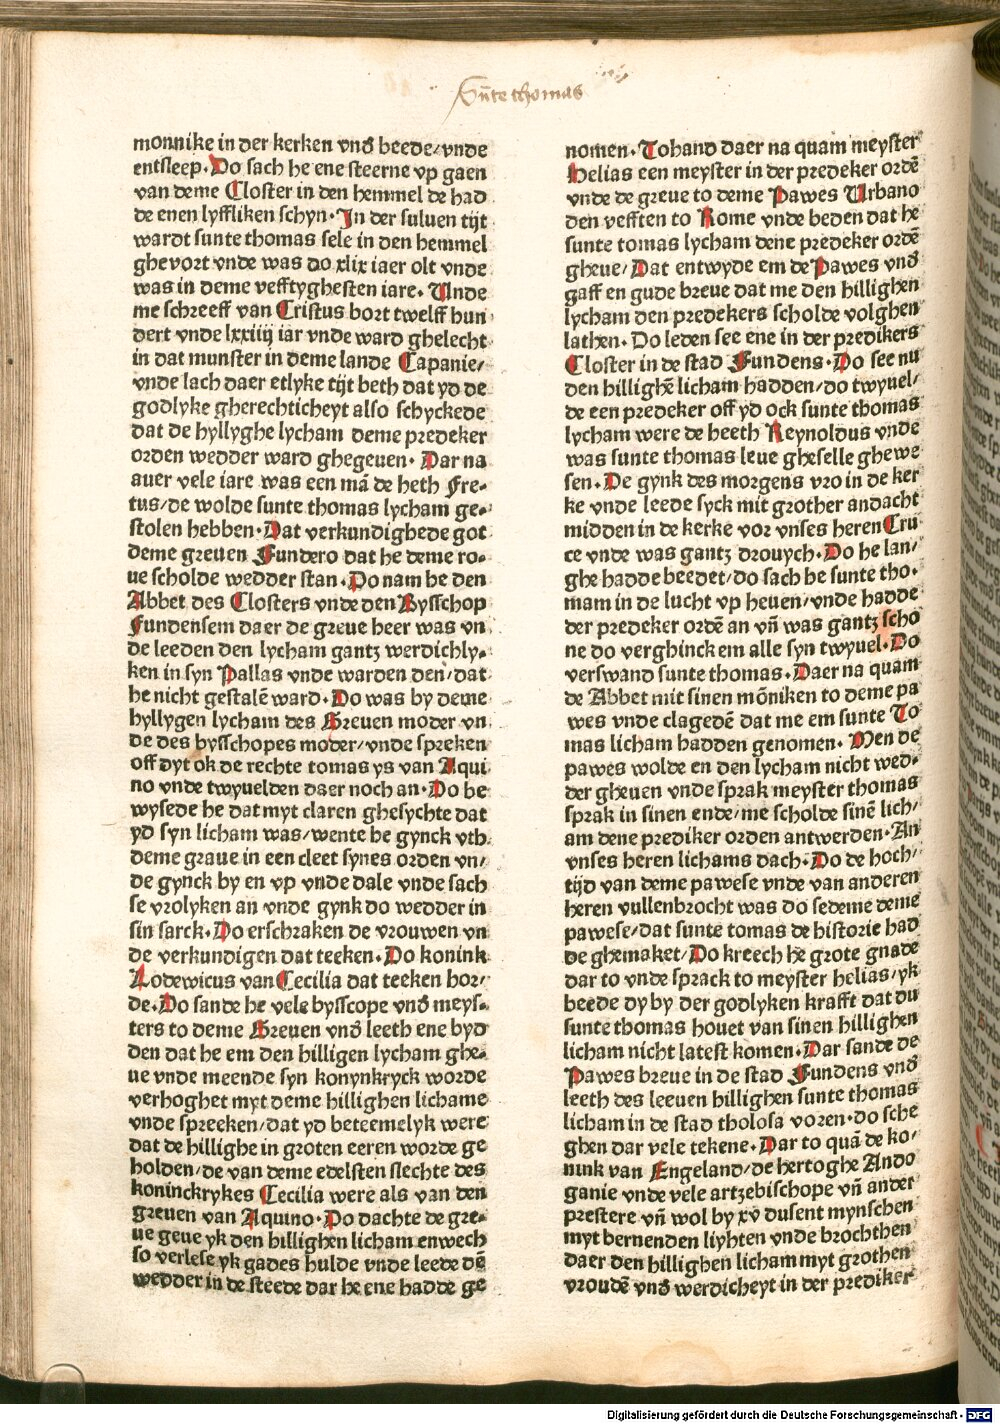 Sūte thomas
monnike in der kerken vnd̄ beede/vnde
entsleep. Do sach he ene steerne vp gaen
van deme Closter in den hemmel de had
de enen lyffliken schyn. In der suluen tijt
wardt sunte thomas sele in den hemmel
ghevort vnde was do xlix iaer olt vnde
was in deme vefftyghesten iare. Vnde
me schreeff van Cristus bort twelff hun
dert vnde lxxiiij iar vnde ward ghelecht
in dat munster in deme lande Capanie/
vnde lach daer etlyke tijt beth dat yd de
godlyke gherechticheyt also schyckede
dat de hyllyghe lycham deme predeker
orden wedder ward ghegeuen. Dar na
auer vele iare was een mā de heth Fre-
tus/de wolde sunte thomas lycham ge-
stolen hebben. Dat verkundighede got
deme greuen Fundero dat he deme ro-
ue scholde wedder stan. Do nam he den
Abbet des Closters vnde den Bysschop
Fundensem daer de greue heer was vn
de leeden den lycham gantz werdichly-
ken in syn Pallas vnde warden den/dat
he nicht gestalē ward. Do was by deme
hyllygen lycham des Greuen moder vn
de des bysschopes moder/vnde spreken
off dyt ok de rechte tomas ys van Aqui
no vnde twyuelden daer noch an. Do be
wysede he dat myt claren ghesychte dat
yd syn licham was/wente he gynck vth
deme graue in een cleet synes orden vn/
de gynck by en vp vnde dale vnde sach
se vrolyken an vnde gynk do wedder in
sin sarck. Do erschraken de vrouwen vn
de verkundigen dat teeken. Do konink
Lodewicus van Cecilia dat teeken hor/
de. Do sande he vele bysscope vnd̄ meys-
ters to deme Greuen vnd̄ leeth ene byd
den dat he em den hilligen lycham ghe-
ue vnde meende syn konynkryck worde
verhoghet myt deme hillighen lichame
vnde spreeken/dat yd beteemelyk were
dat de hillighe in groten eeren worde ge
holden/de van deme edelsten slechte des
koninckrykes Cecilia were als van den
greuen van Aquino. Do dachte de gre-
ue geue yk den hillighen licham enwech
so verlese yk gades hulde vnde leede dē
wedder in de steede dar he ene hadde ge
nomen. Tohand daer na quam meyster
Helias een meyster in der predeker ordē
vnde de greue to deme Pawes Urbano
den vefften to Rome vnde beden dat he
sunte tomas lycham dene predeker ordē
gheue/Dat entwyde em de Pawes vnd̄
gaff en gude breue dat me den hillighen
lycham den predekers scholde volghen
lathen. Do leden see ene in der predikers
Closter in de stad Fundens. Do see nu
den hillighē licham hadden/do twyuel/
de een predeker off yd ock sunte thomas
lycham were de heeth Reynoldus vnde
was sunte thomas leue gheselle ghewe
sen. De gynk des morgens vro in de ker
ke vnde leede syck mit grother andacht
midden in de kerke vor vnses heren Cru
ce vnde was gantz drouych. Do he lan/
ghe hadde beedet/do sach he sunte tho-
mam in de lucht vp heuen/vnde hadde
der predeker ordē an vn̄ was gantz scho
ne do verghinck em alle syn twyuel. Do
verswand sunte thomas. Daer na quam
de Abbet mit sinen mōniken to deme pa
wes vnde clagedē dat me em sunte To
mas licham hadden genomen. Men de
pawes wolde en den lycham nicht wed-
der gheuen vnde sprak meyster thomas
sprak in sinen ende/me scholde sinē lich/
am dene prediker orden antwerden. An
vnses heren lichams dach. Do de hoch/
tijd van deme pawese vnde van anderen
heren vullenbrocht was do sedeme deme
pawese/dat sunte tomas de historie had
de ghemaket/Do kreech he grote gnade
dar to vnde sprack to meyster helias/yk
beede dy by der godlyken krafft dat du
sunte thomas houet van sinen hillighen
licham nicht latest komen. Dar sande de
Pawes breue in de stad Fundens vnd̄
leeth des leeuen hillighen sunte thomas
licham in de stad tholosa voren. do sche
ghen dar vele tekene. Dar to quā de ko/
nink van Engeland/de hertoghe Ando
ganie vnde vele artzebischope vn̄ ander
prestere vn̄ wol by xv dusent mynschen
myt bernenden liyhten vnde brochthen
daer den hillighen licham myt grothen
vroudē vnd̄ werdicheyt in der prediker
Digitalisierung gefördert durch die Deutsche Forschungsgemeinschaft - DFG